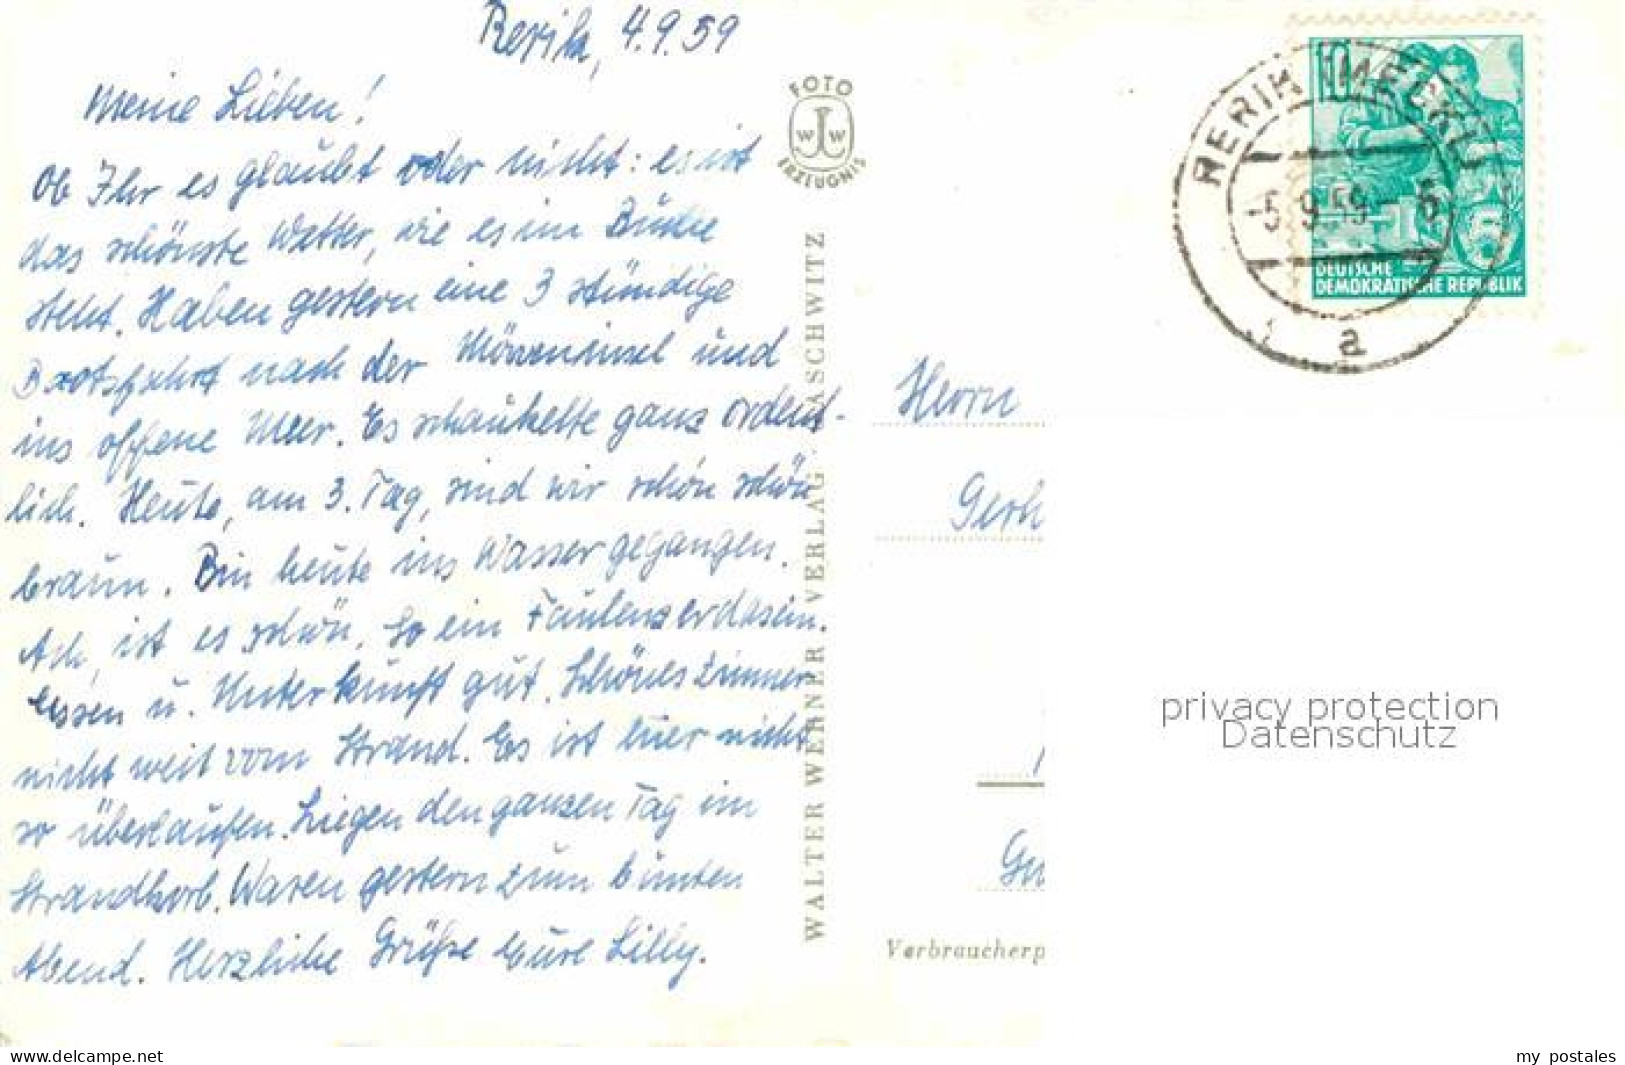 Rerik, 4.9.59
Meine Lieben!
Ob Ihr es glaubt oder nicht: es ist
das schönste Wetter, wie es im Buche
steht. Haben gestern eine 3 stündige
Bootsfahrt nach der Möweninsel und
ins offene Meer. Es schaukelte ganz ordent-
lich. Heute, am 3. Tag, sind wir schön
braun. Bin heute ins Wasser gegangen.
Ach, ist es schön. So ein Faulenzerdasein.
Essen u. Unterkunft gut. Schönes Zimmer,
nicht weit vom Strand. Es ist hier nicht
so überlaufen. Liegen den ganzen Tag im
Strandkorb. Waren gestern zum bunten
Abend. Herzliche Grüße Eure Lilly.
FOTO
W W
ERZEUGNIS
WALTER WERNER VERLAG · ZASCHWITZ
RERIK (MECKL)
-5.9.59-
a
10
DEUTSCHE
DEMOKRATISCHE REPUBLIK
Herrn
Gerh
Verbraucherp
privacy protection
Datenschutz
www.delcampe.net
my_postales